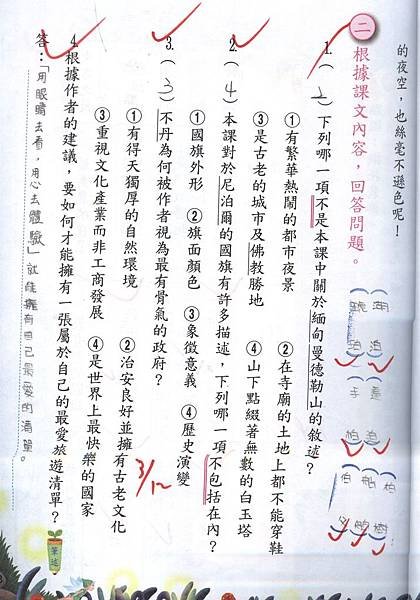 的夜空，也絲毫不遜色呢！
二 根據課文內容，回答問題。
1.（ ）下列哪一項不是本課中關於緬甸曼德勒山的敘述？
①有繁華熱鬧的都市夜景 ②在寺廟的土地上都不能穿鞋
③是古老的城市及佛教勝地 ④山下點綴著無數的白玉塔
2.（4）本課對於尼泊爾的國旗有許多描述，下列哪一項不包括在內？
①國旗外形 ②旗面顏色 ③象徵意義 ④歷史演變
3.（3）不丹為何被作者視為最有骨氣的政府？
①有得天獨厚的自然環境 ②治安良好並擁有古老文化
③重視文化產業而非工商發展 ④是世界上最快樂的國家
3/12
4.根據作者的建議，要如何才能擁有一張屬於自己的最愛旅遊清單？
筆述
答：「用眼睛去看，用心去體驗」就能擁有自己最愛的清單。
湖
泊